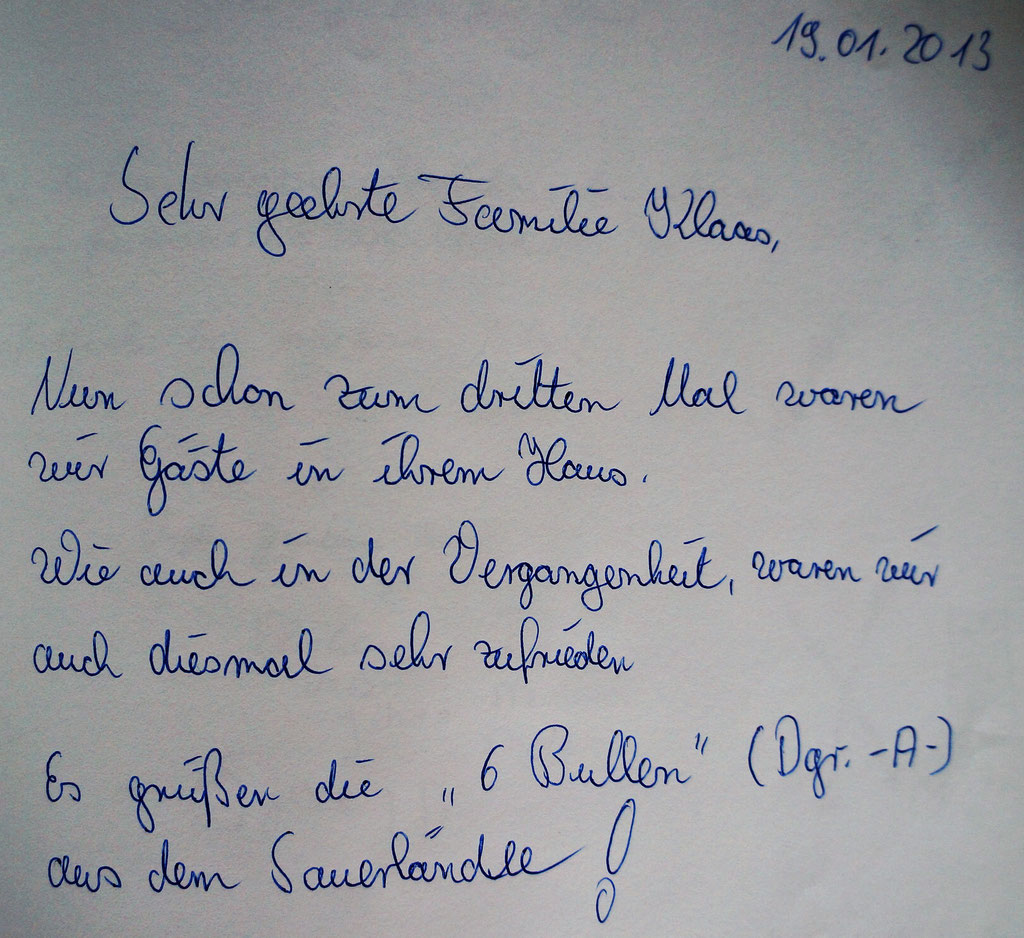 19.01.2013
Sehr geehrte Familie Klaas,
Nun schon zum dritten Mal waren
wir Gäste in ihrem Haus.
Wie auch in der Vergangenheit, waren wir
auch diesmal sehr zufrieden
Es grüßen die „6 Bullen" (Dgr. -A-)
aus dem Sauerländle!